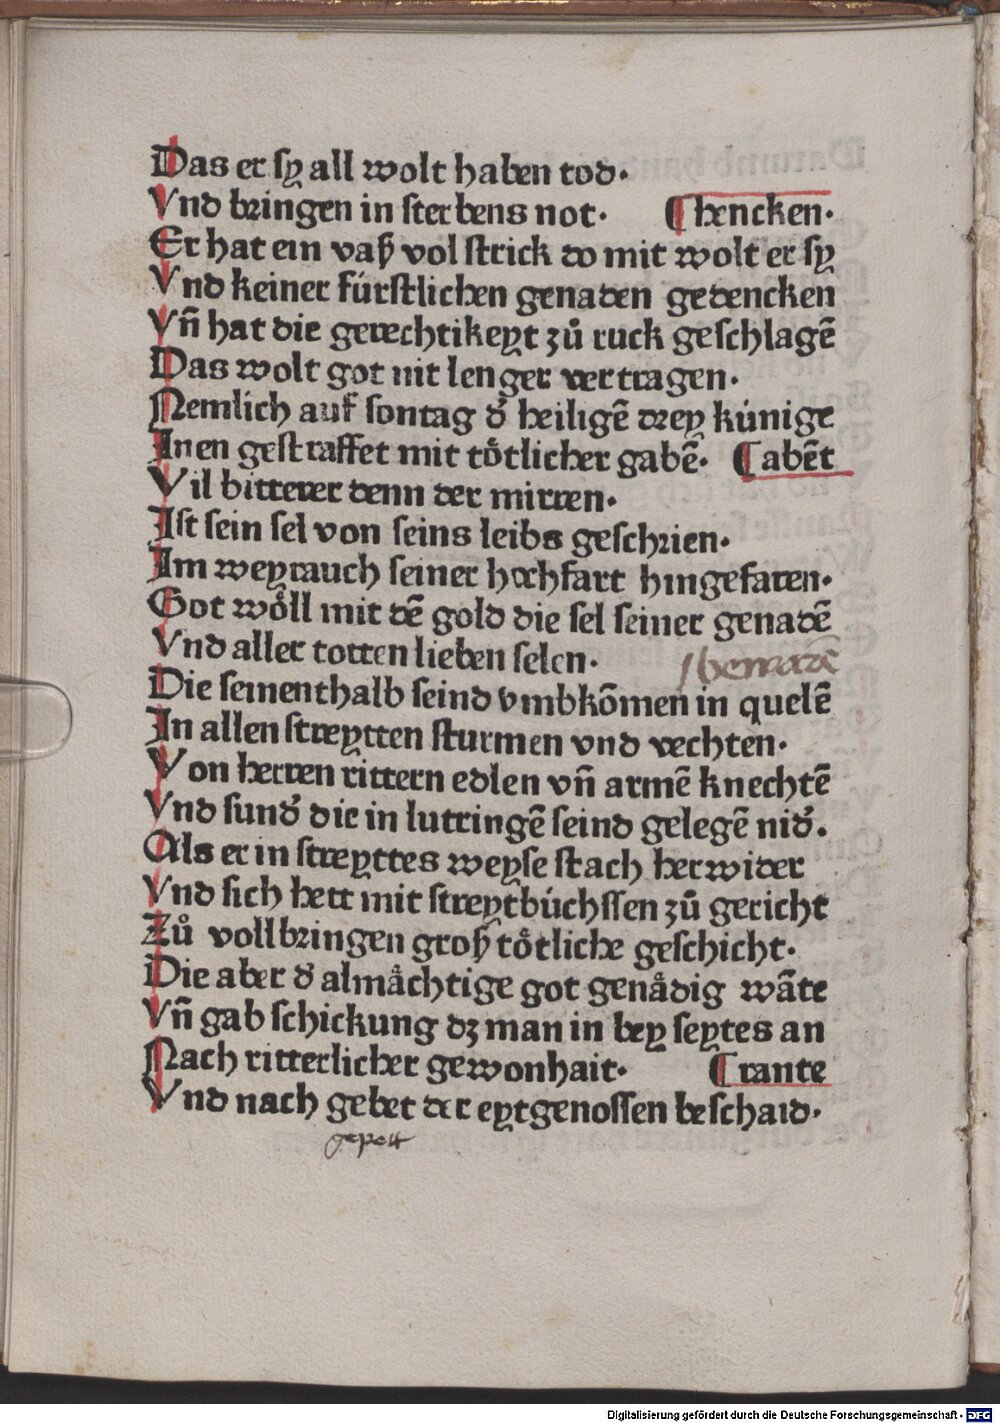 Das er sy all wolt haben tod·
Vnd bringen in sterbens not· ¶ hencken·
Er hat ein vaß vol strick do mit wolt er sy
Vnd keiner fúrstlichen genaden gedencken
Vñ hat die gerechtikeyt zů ruck geschlagē
Das wolt got nit lenger vertragen·
Nemlich auf sontag d̕ heiligē drey kúnige
Inen gestraffet mit toͤtlicher gabē· ¶ abēt
Vil bitterer denn der mirren·
Ist sein sel von seins leibs geschrien·
Im weyrauch seiner hochfart hingefaren·
Got woͤll mit dē gold die sel seiner genadē
Vnd aller totten lieben selen·
Die seinenthalb seind vmbkōmen in quelē
In allen streytten sturmen vnd vechten·
Von herren rittern edlen vñ armē knechtē
Vnd sund̕ die in lutringē seind gelegē nid̕.
Als er in streyttes weyse stach herwider
Vnd sich hett mit streytbúchssen zů gericht
Zů vollbringen groß toͤtliche geschicht·
Die aber d̕ almaͤchtige got genaͤdig wāte
Vñ gab schickung dz man in bey seytes an
Nach ritterlicher gewonhait· ¶ rante
Vnd nach gebet der eytgenossen beschaid·
gepott
Digitalisierung gefördert durch die Deutsche Forschungsgemeinschaft - DFG